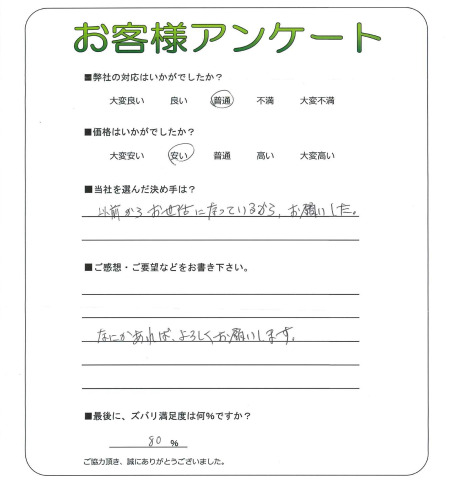 お客様アンケート
■弊社の対応はいかがでしたか？
大変良い 良い 普通 不満 大変不満
■価格はいかがでしたか？
大変安い 安い 普通 高い 大変高い
■当社を選んだ決め手は？
以前からお世話になっているから、お願いした。
■ご感想・ご要望などをお書き下さい。
なにかあれば、よろしくお願いします。
■最後に、ズバリ満足度は何％ですか？
80 ％
ご協力頂き、誠にありがとうございました。